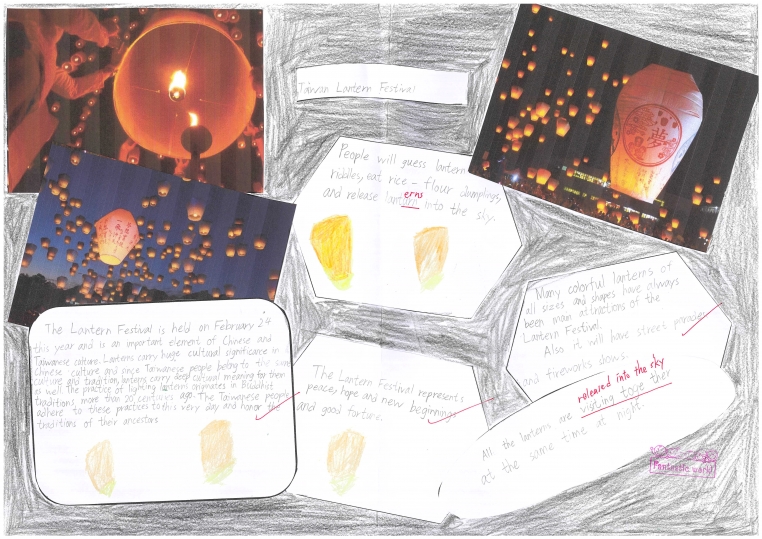 Taiwan Lantern Festival
People will guess lantern
riddles, eat rice-flour dumplings,
erns
and release lantern into the sky.
Many colorful lanterns of
all sizes and shapes have always
been main attractions of the
Lantern Festival.
Also it will have street parades
and fireworks shows.
The Lantern Festival is held on February 24
this year and is an important element of Chinese and
Taiwanese culture. Lanterns carry huge cultural significance in
Chinese culture and once Taiwanese people belong to the same
culture and tradition, lanterns carry deep cultural meaning for them
as well. The practice of lighting lanterns originates in Buddhist
traditions more than 20 centuries ago. The Taiwanese people
adhere to these practices to this very day and honor the
traditions of their ancestors
The Lantern Festival represents
peace, hope and new beginnings
and good fortune.
released into the sky
All the lanterns are visiting toge ther
at the same time at night.
Fantastic world
夢